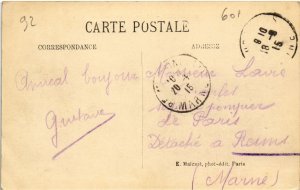 92
601
CARTE POSTALE
CORRESPONDANCE
ADRESSE
Amical bonjour
Gustave
Monsieur Laire
les
Sapeurs pompiers
de Paris
Détaché à Reims
(Marne)
E. Malcuit, phot-édit. Paris